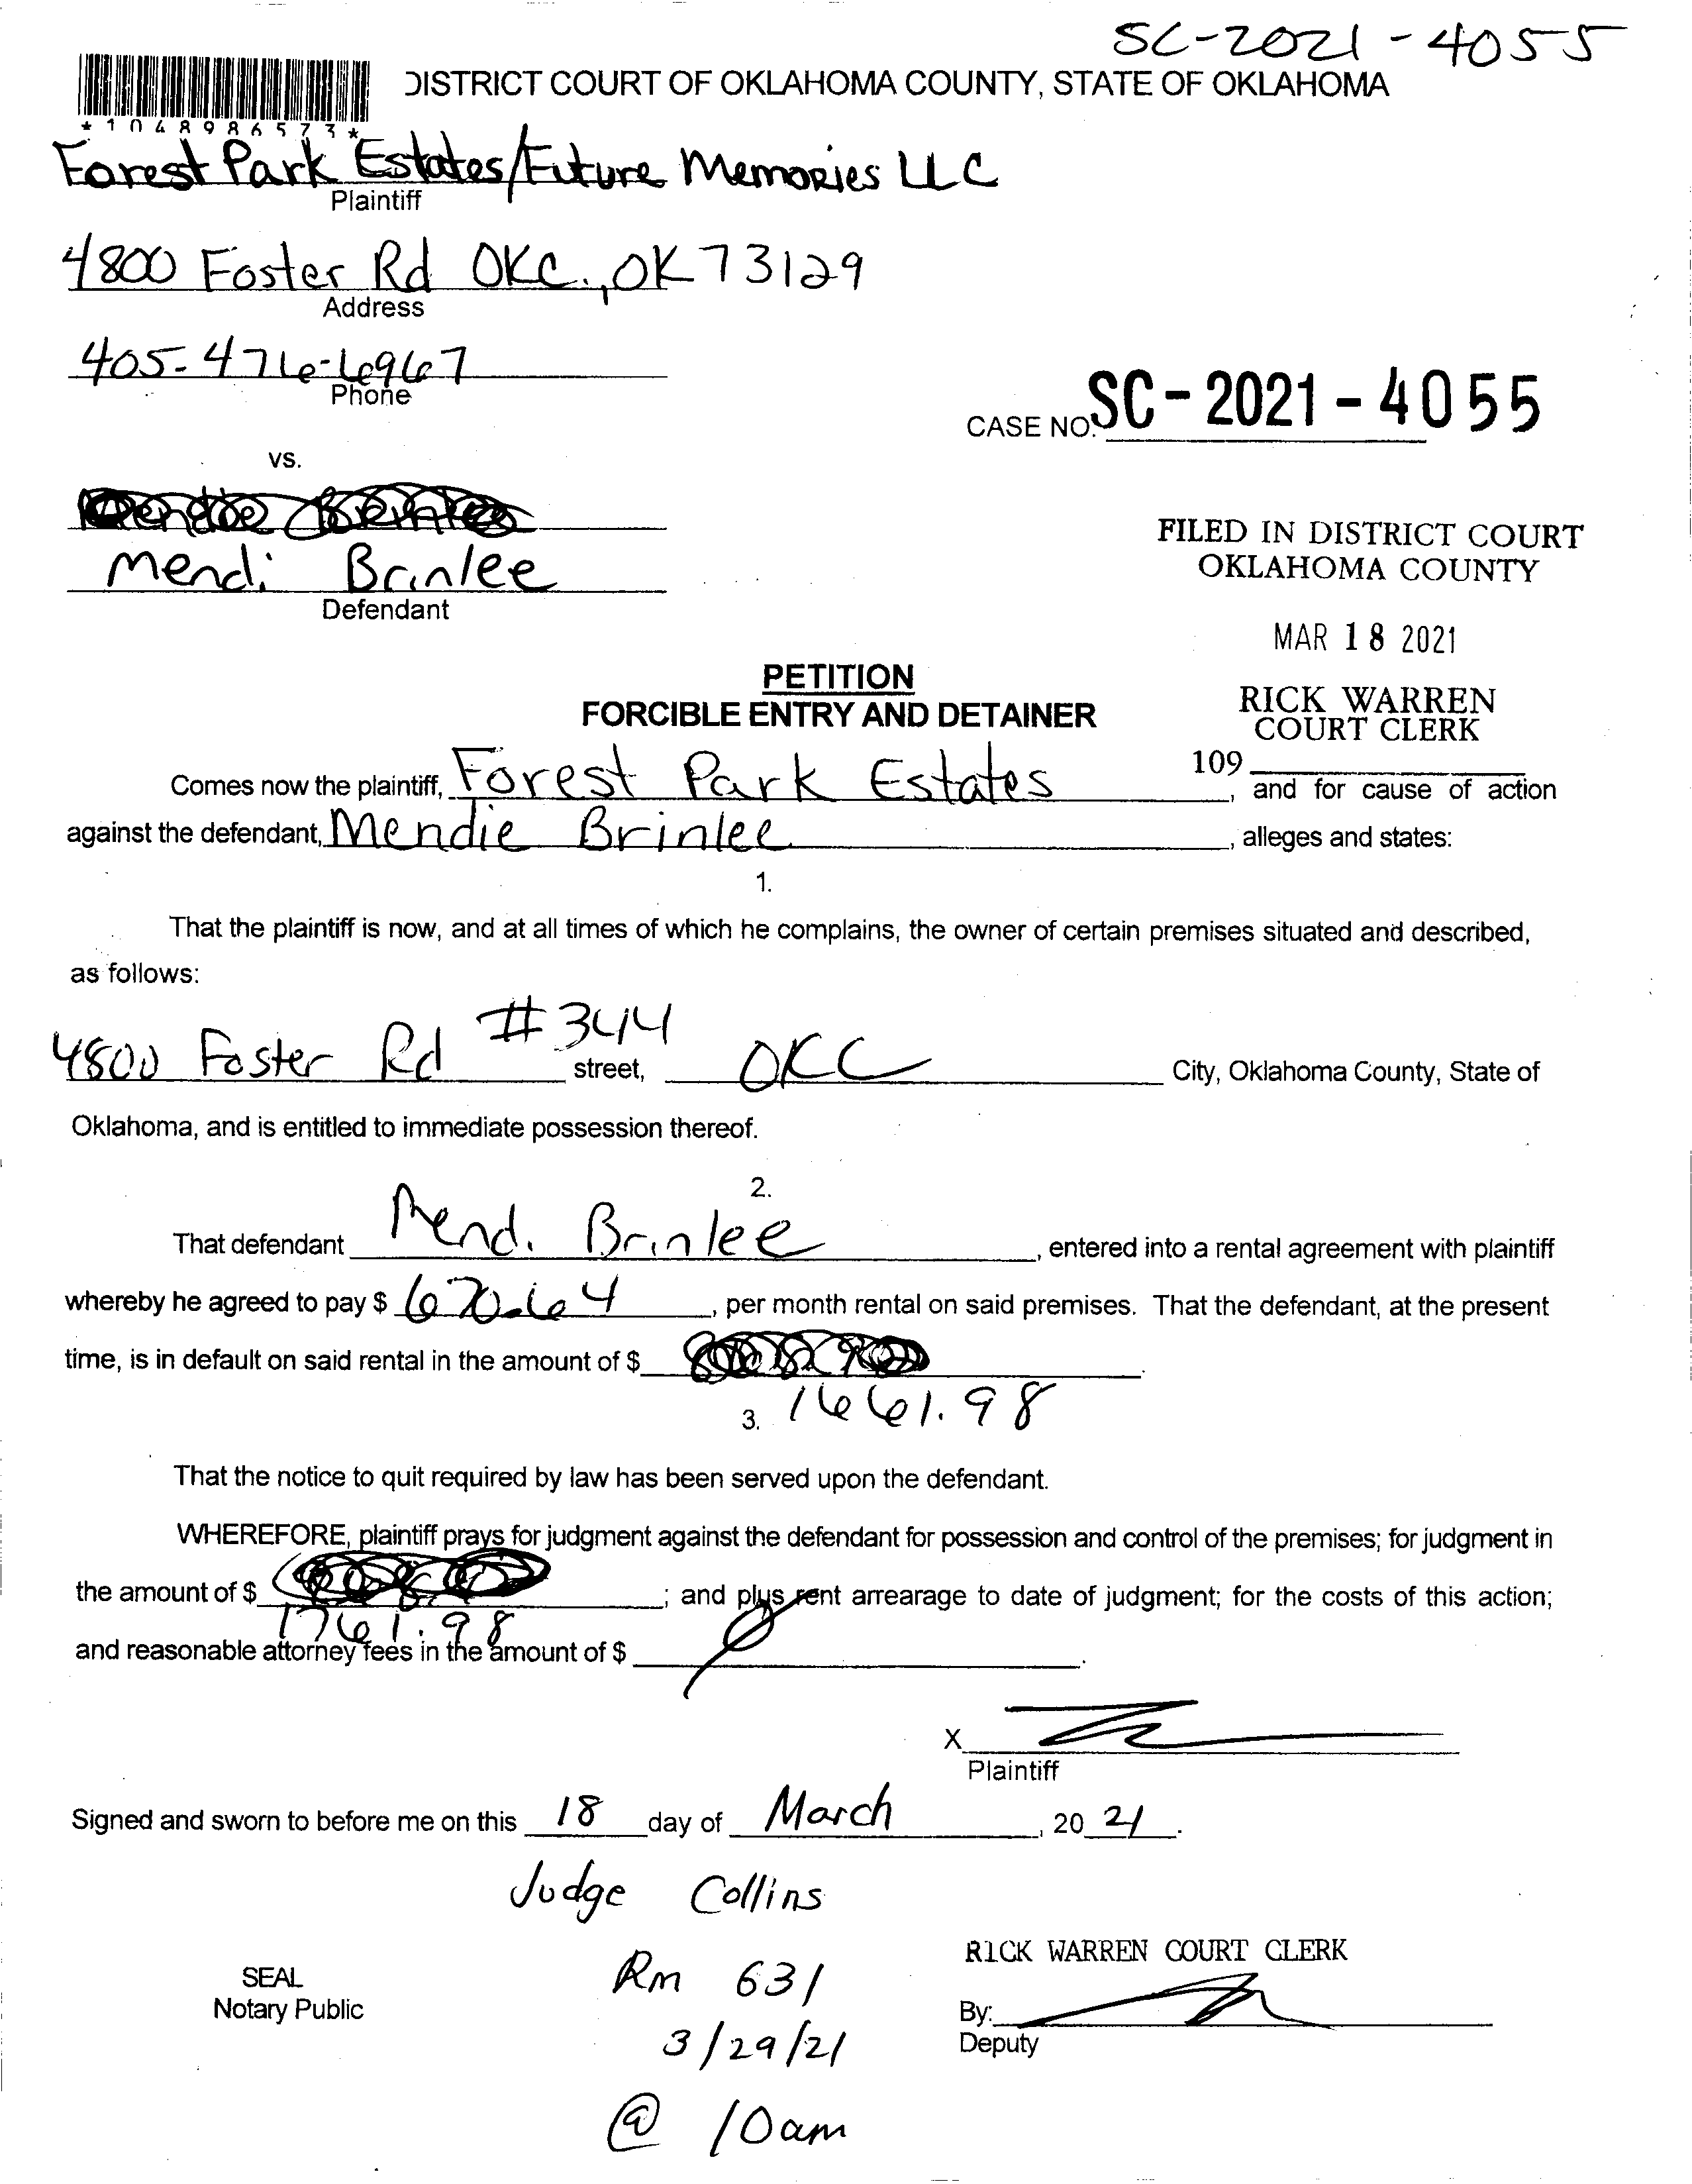 SC-2021-4055
DISTRICT COURT OF OKLAHOMA COUNTY, STATE OF OKLAHOMA
*1048986573*
Forest Park Estates/Future Memories LLC
Plaintiff
4800 Foster Rd OKC., OK 73129
Address
405-476-6967
Phone
CASE NO. SC-2021-4055
vs.
Mendi Brinlee
Defendant
FILED IN DISTRICT COURT
OKLAHOMA COUNTY
MAR 18 2021
RICK WARREN
COURT CLERK
109
PETITION
FORCIBLE ENTRY AND DETAINER
Comes now the plaintiff, Forest Park Estates, and for cause of action
against the defendant, Mendie Brinlee, alleges and states:
1.
That the plaintiff is now, and at all times of which he complains, the owner of certain premises situated and described,
as follows:
4800 Foster Rd #344 street, OKC City, Oklahoma County, State of
Oklahoma, and is entitled to immediate possession thereof.
2.
That defendant Mendi Brinlee, entered into a rental agreement with plaintiff
whereby he agreed to pay $ 670.64, per month rental on said premises. That the defendant, at the present
time, is in default on said rental in the amount of $
1661.98
3.
That the notice to quit required by law has been served upon the defendant.
WHEREFORE, plaintiff prays for judgment against the defendant for possession and control of the premises; for judgment in
the amount of $ ; and plus rent arrearage to date of judgment; for the costs of this action;
1761.98
and reasonable attorney fees in the amount of $ 0.
X
Plaintiff
Signed and sworn to before me on this 18 day of March, 20 21.
Judge Collins
Rm 631
3/29/21
@ 10am
SEAL
Notary Public
RICK WARREN COURT CLERK
By:
Deputy